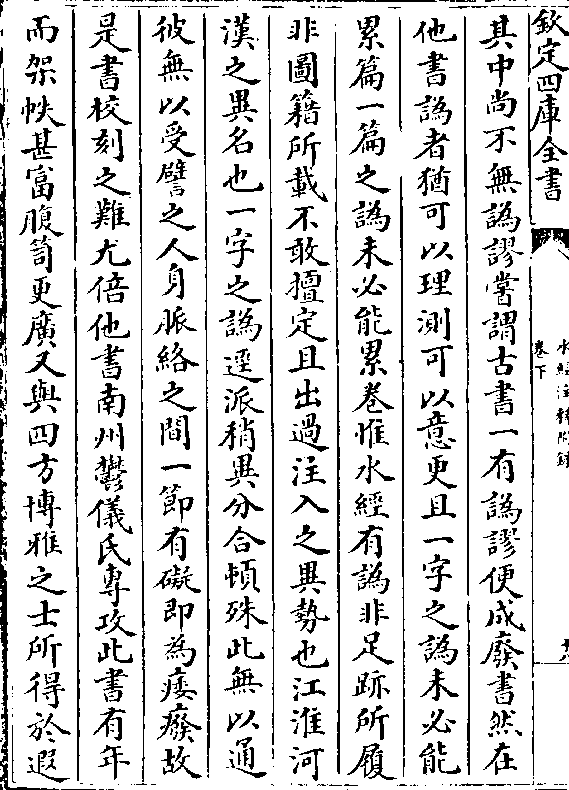 欽定四庫全書
水經注釋附錄
卷下
其中尚不無譌謬嘗謂古書一有譌謬便成廢書然在
他書譌者猶可以理測可以意更且一字之譌未必能
累篇一篇之譌未必能累卷惟水經有譌非足跡所履
非圖籍所載不敢擅定且出過注入之異勢也江淮河
漢之異名也一字之譌逕派稍異分合頓殊此無以通
彼無以受譬之人身脈絡之間一節有礙即為痿癈故
是書校刻之難尤倍他書南州鬱儀氏專攻此書有年
而架帙甚富腹笥更廣又與四方博雅之士所得於遐